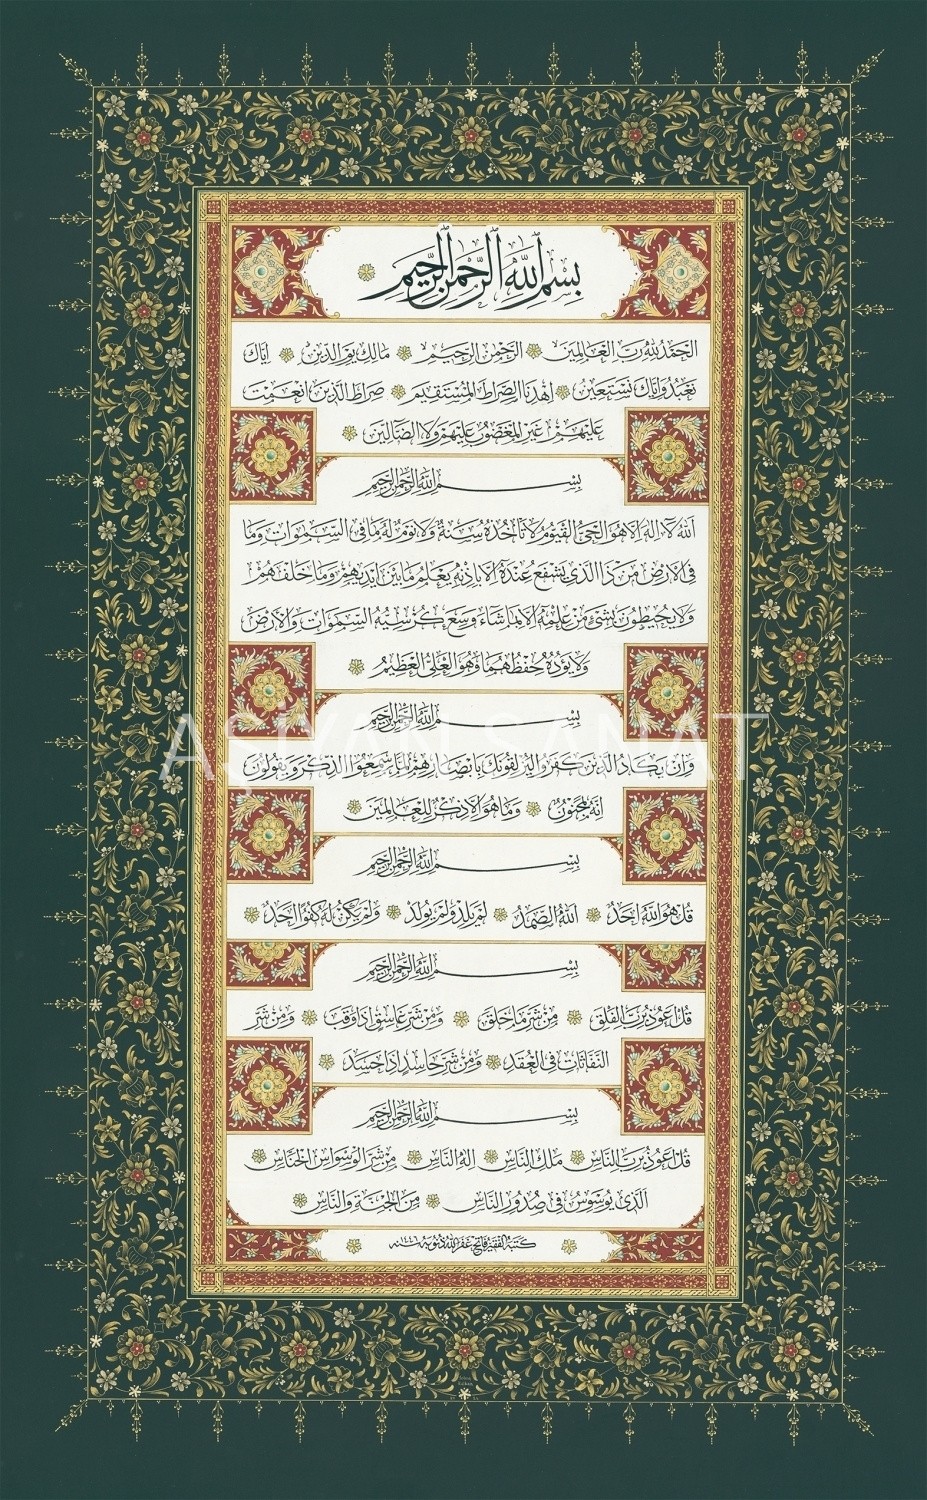 بسم الله الرحمن الرحيم
الحمد لله رب العالمين الرحمن الرحيم مالك يوم الدين اياك
نعبد واياك نستعين اهدنا الصراط المستقيم صراط الذين انعمت
عليهم غير المغضوب عليهم ولا الضالين
بسم الله الرحمن الرحيم
الله لا اله الا هو الحي القيوم لا تأخذه سنة ولا نوم له ما في السموات وما
في الارض من ذا الذي يشفع عنده الا باذنه يعلم ما بين ايديهم وما خلفهم
ولا يحيطون بشئ من علمه الا بما شاء وسع كرسيه السموات والارض
ولا يؤده حفظهما وهو العلي العظيم
بسم الله الرحمن الرحيم
AŞİYAN SANAT
وان يكاد الذين كفروا ليزلقونك بابصارهم لما سمعوا الذكر ويقولون
انه لمجنون وما هو الا ذكر للعالمين
بسم الله الرحمن الرحيم
قل هو الله احد الله الصمد لم يلد ولم يولد ولم يكن له كفوا احد
بسم الله الرحمن الرحيم
قل اعوذ برب الفلق من شر ما خلق ومن شر غاسق اذا وقب ومن شر
النفاثات في العقد ومن شر حاسد اذا حسد
بسم الله الرحمن الرحيم
قل اعوذ برب الناس ملك الناس اله الناس من شر الوسواس الخناس
الذي يوسوس في صدور الناس من الجنة والناس
كتبه الفقير فاتح غفر الله ذنوبه